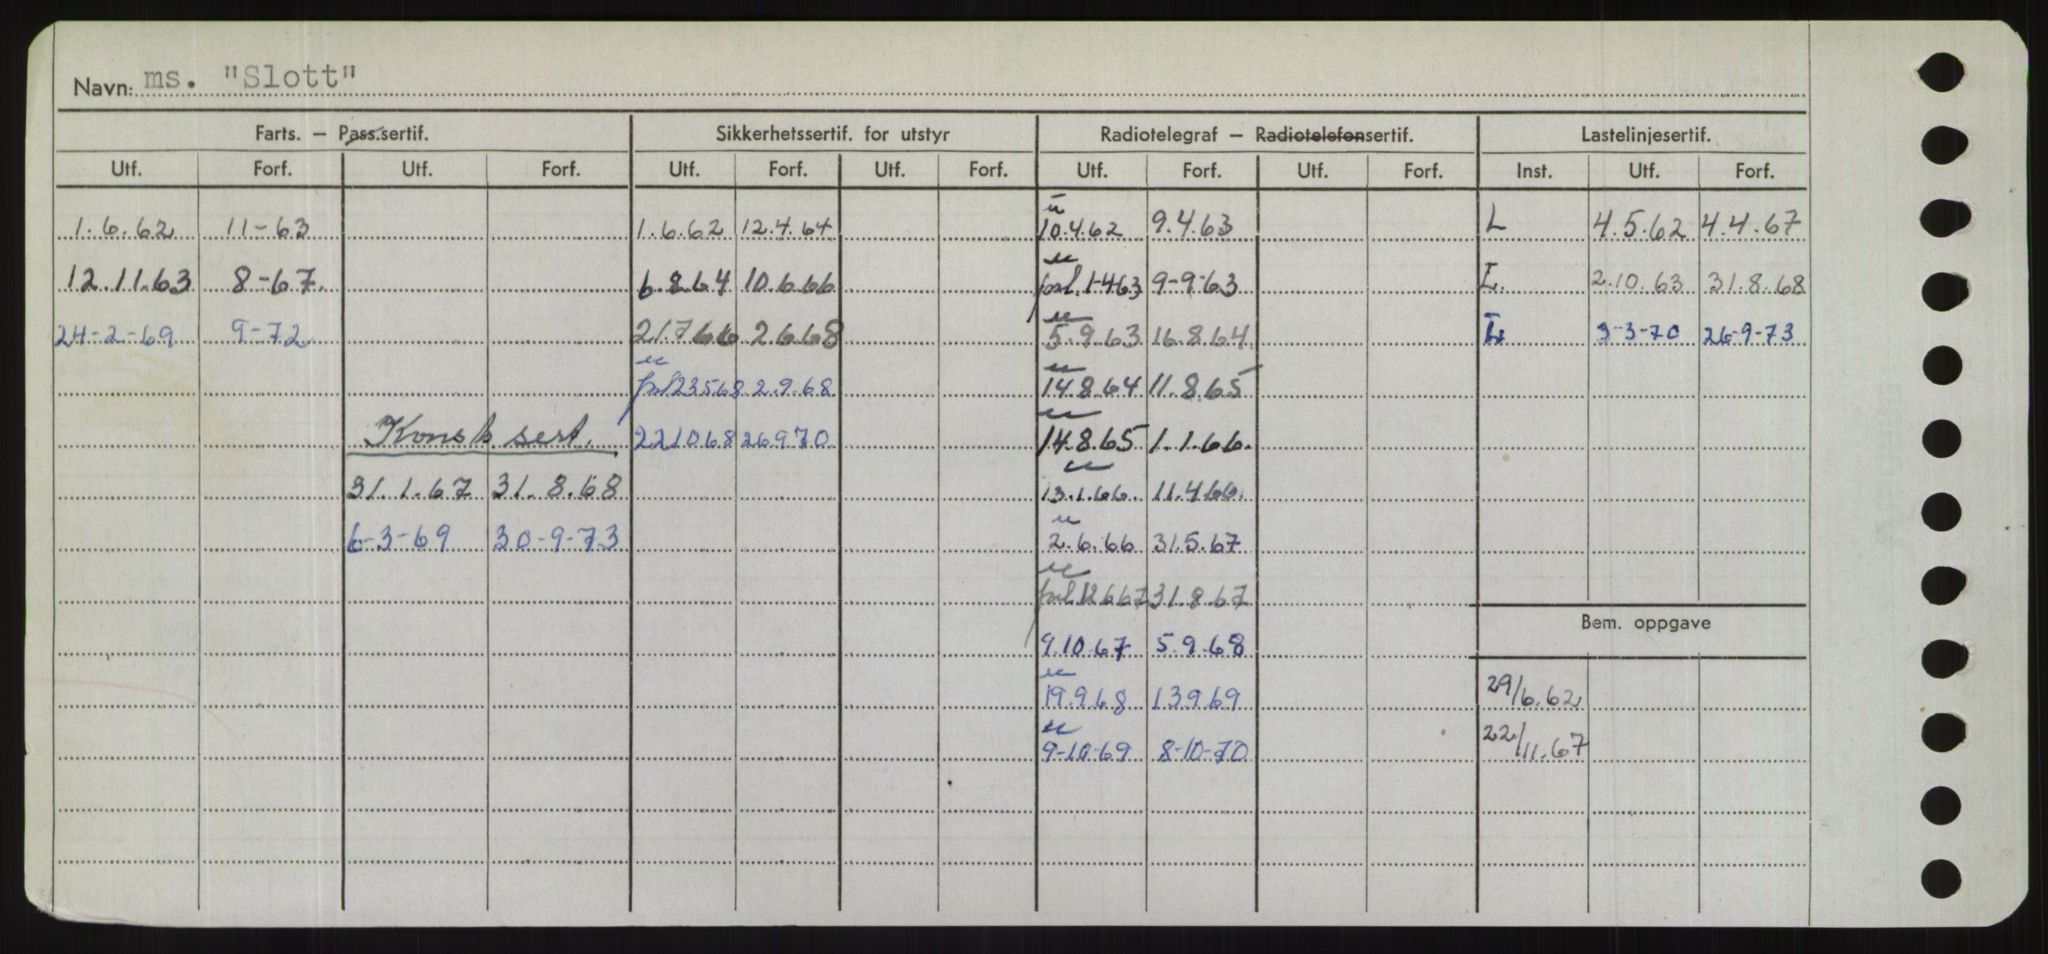 Navn: ms. "Slott"
Farts. — Pass.sertif. Sikkerhetssertif. for utstyr Radiotelegraf — Radiotelefonsertif. Lastelinjesertif.
Utf. Forf. Utf. Forf. Utf. Forf. Utf. Forf. Utf. Forf. Utf. Forf. Inst. Utf. Forf.
1.6.62 11-63 1.6.62 12.4.64 10.4.62 9.4.63 L 4.5.62 4.4.67
12.11.63 8-67. 6.8.64 10.6.66 forl. 1-463 9-9-63 L. 2.10.63 31.8.68
24-2-69 9-72 21.7.66 2.6.68 5.9.63 16.8.64. L 3-3-70 26-9-73
forl 23568 2.9.68 14.8.64 11.8.65
Konstr sert. 221068 26970 14.8.65 1.1.66.
31.1.67 31.8.68 13.1.66. 11.4.66.
6-3-69 30-9-73 2.6.66 31.5.67
forl. 12667 31.8.67
Bem. oppgave
9.10.67 5.9.68
19.9.68 13969 29/6.62
9-10-69 8-10-70 22/11.67